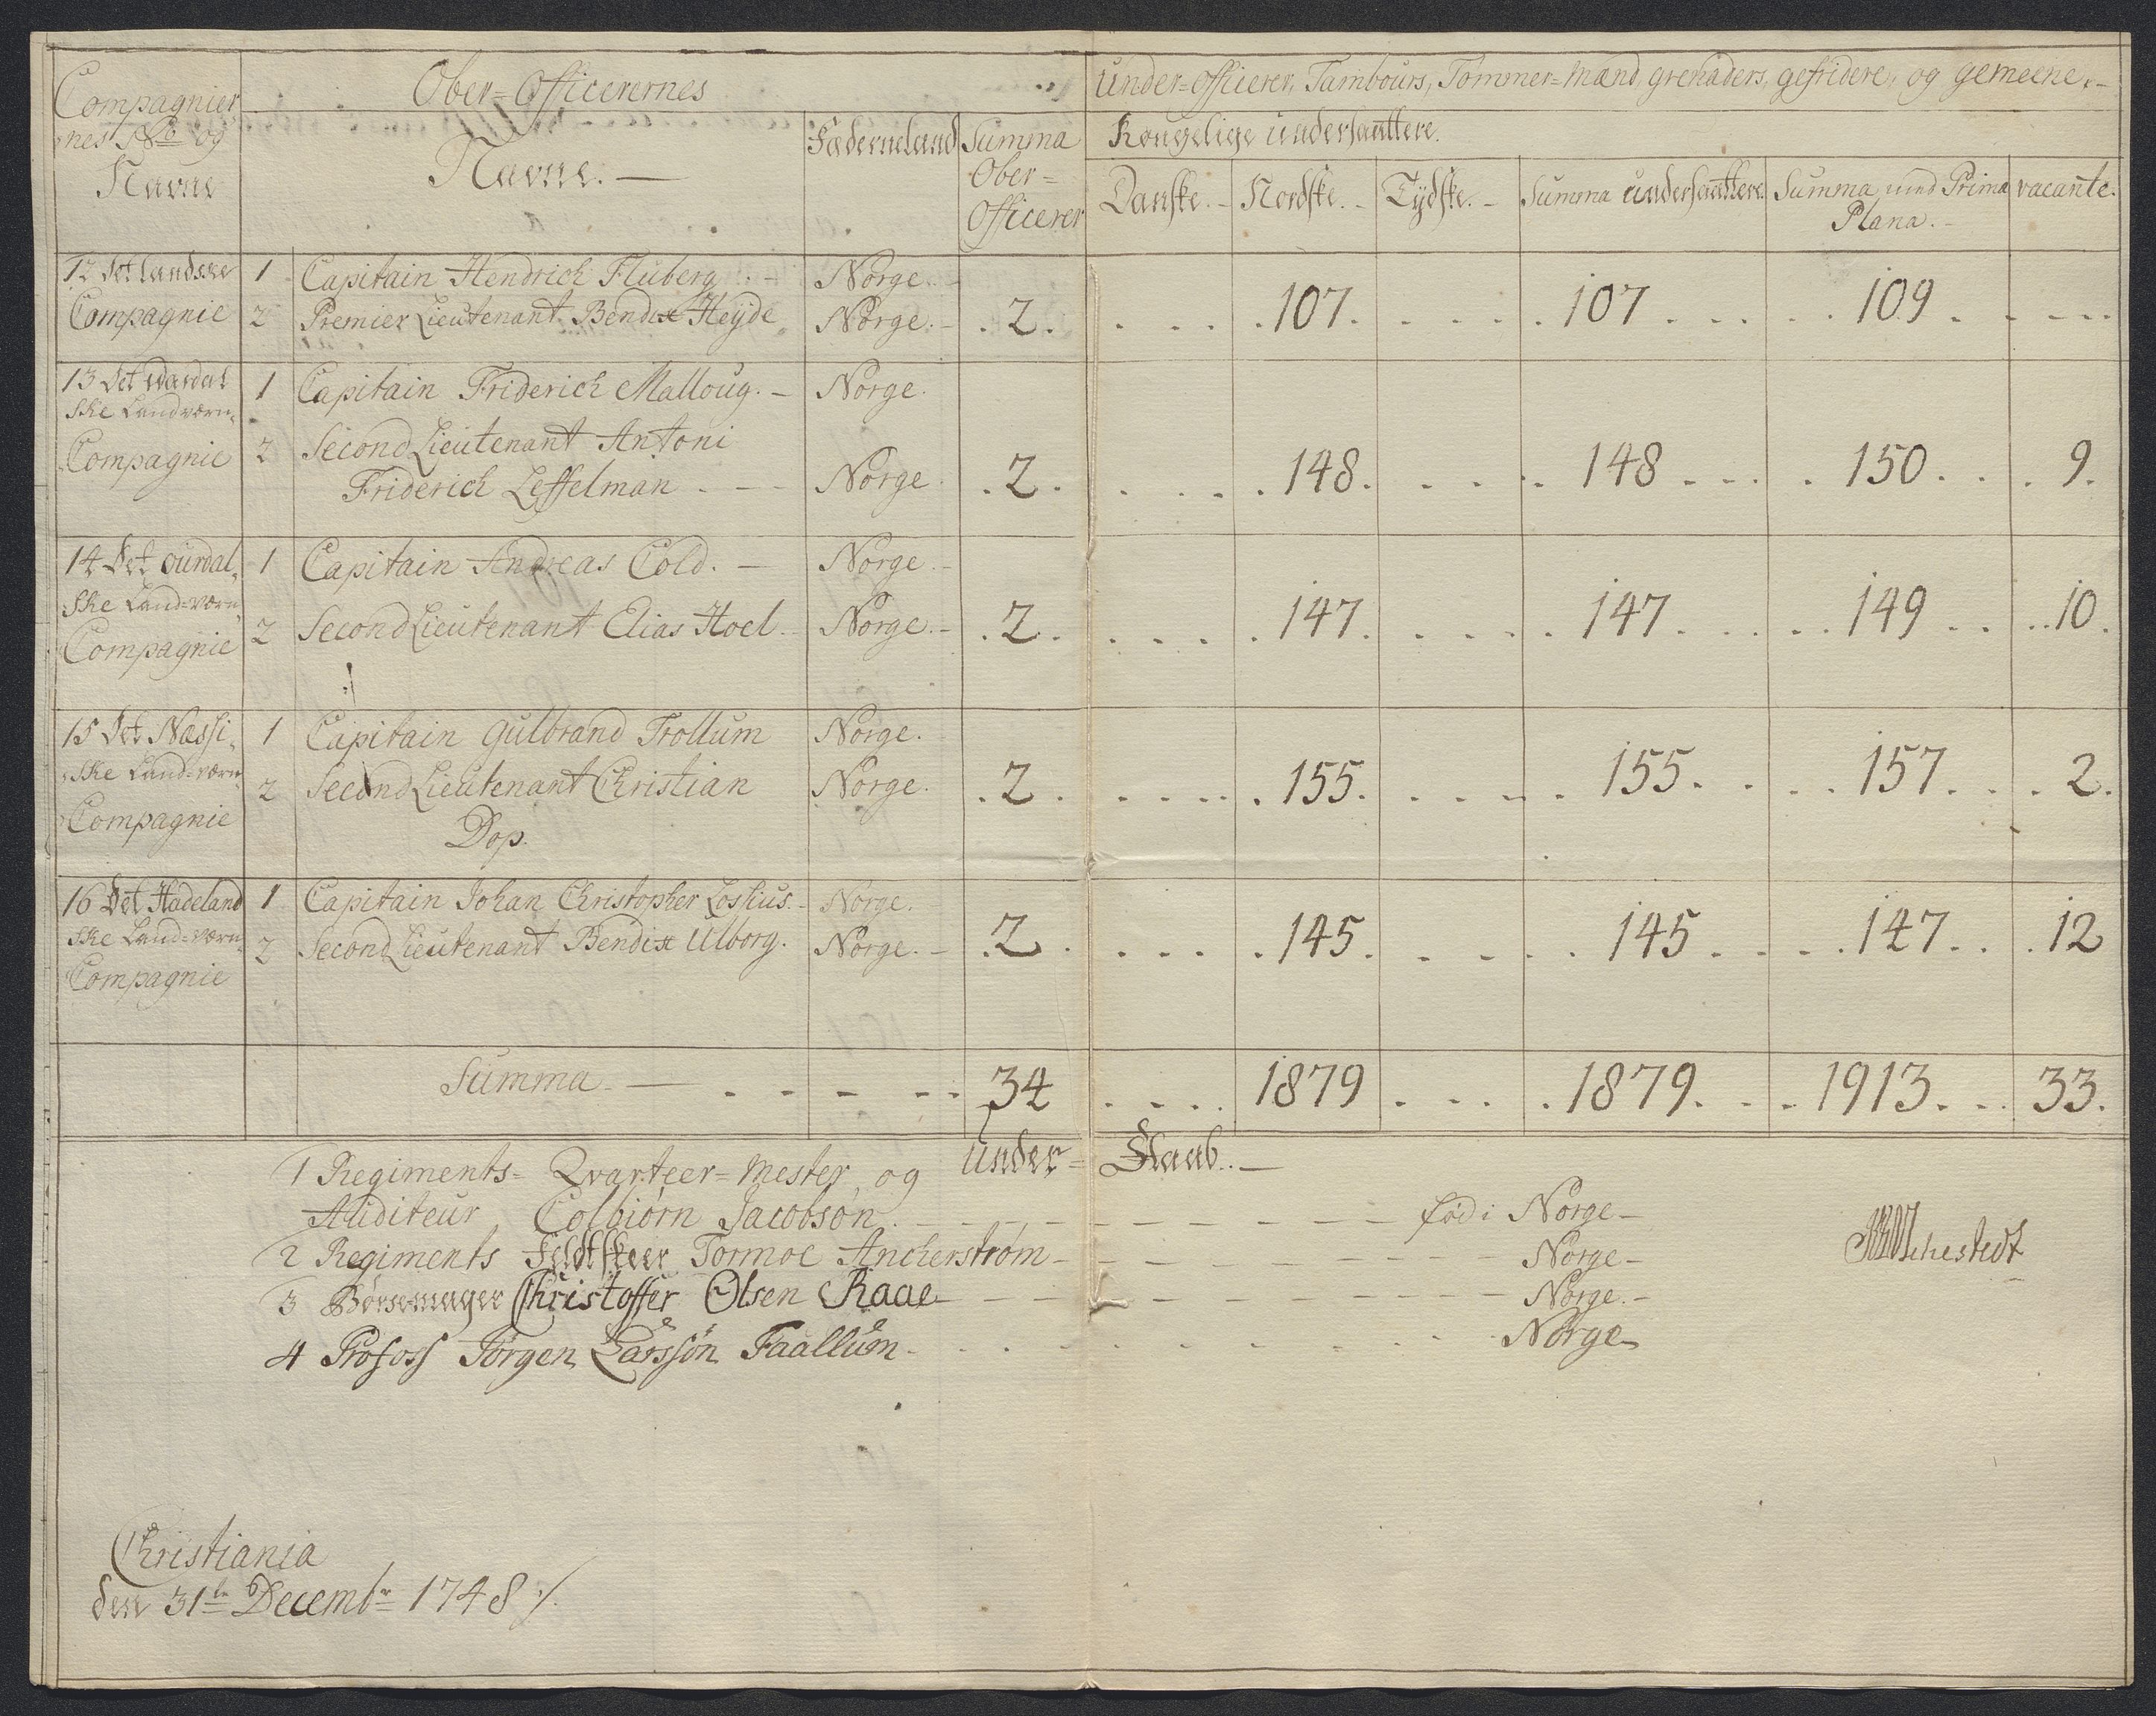 Compagnier
nes No og
Navne
Ober=Officerernes
Navne. —
Fæderneland
Summa
Ober=
Officerer
Under=officerer, Tambours, Tømmer=mænd, grenaders, gefridere, og gemeene.-
Kongelige undersaattere.
Danske. -
Nordske. -
Tydske. -
Summa undersaattere.
Summa med Prima
Plana. -
vacante.
12 det landske
Compagnie
1 Capitain Hendrich Fluberg. - Norge. -
2 Premier Lieutenant Bendix Heyde Norge. - . 2 . . . . . . 107. . . . . . 107 . . . . . 109 . . - - - ..
13 det
ske Landværn-
Compagnie
1 Capitain Friderich Malloug. - Norge.
2 Second Lieutenant Antoni
Friderich Leffelman . - - Norge. . 2 . . . . . . 148. . . . . . 148 . . . . 150 . . . 9.
14 det ourdal-
ske Land=værn
Compagnie
1 Capitain Andreas Cold. - Norge. -
2 Second Lieutenant Elias Hoel. Norge. - . 2 . . . . . . 147. . . . . . 147. . . . . 149 . . . . 10 .
15 det Næssi-
ske Land=værn
Compagnie
1 Capitain Gulbrand Trollum Norge.
2 Second Lieutenant Christian Norge. . 2 . . . . . . 155. . . . . . 155. . . . . 157. . . . 2.
Dop.
16 Det Hadeland
ske Land=værn-
Compagnie
1 Capitain Johan Christopher Lossius. - Norge.
2 Second Lieutenant Bendix Ulborg. Norge. - . 2 . . . . . 145. . . . . . 145 . . . . . 147. . . 12
Summa. — . - - - - - 34 . . . . 1879 . . . . . 1879. . . . 1913. . . 33.
Under= Staab. . —
1 Regiments= Qvarteer=mester, og
Auditeur Colbiørn Jacobsøn. - - - - - - - - - - fød i Norge -
2 Regiments Feldtskeer Tormoe Ancherstrøm - - - - - - - - Norge -
3 Børsemager Christoffer Olsen Raae - - - - - - - - Norge. -
4 Profoss Jørgen Larssøn Faallum . . . . . . . . . Norge -
Christiania
den 31te Decembr 1748 ./.